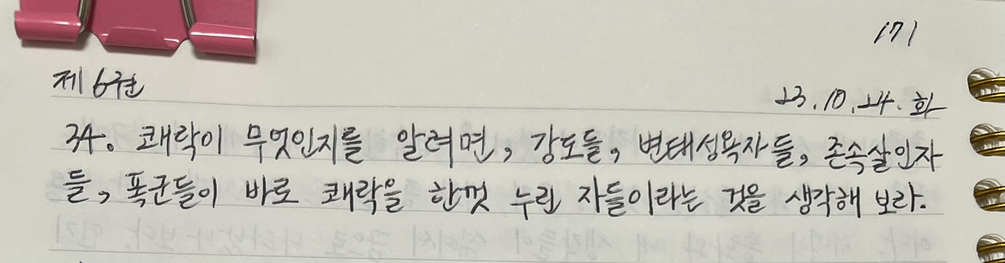 171
제 6권
23.10.24.화
34. 쾌락이 무엇인지를 알려면, 강도들, 변태성욕자들, 존속살인자
들, 폭군들이 바로 쾌락을 한껏 누린 자들이라는 것을 생각해 보라.